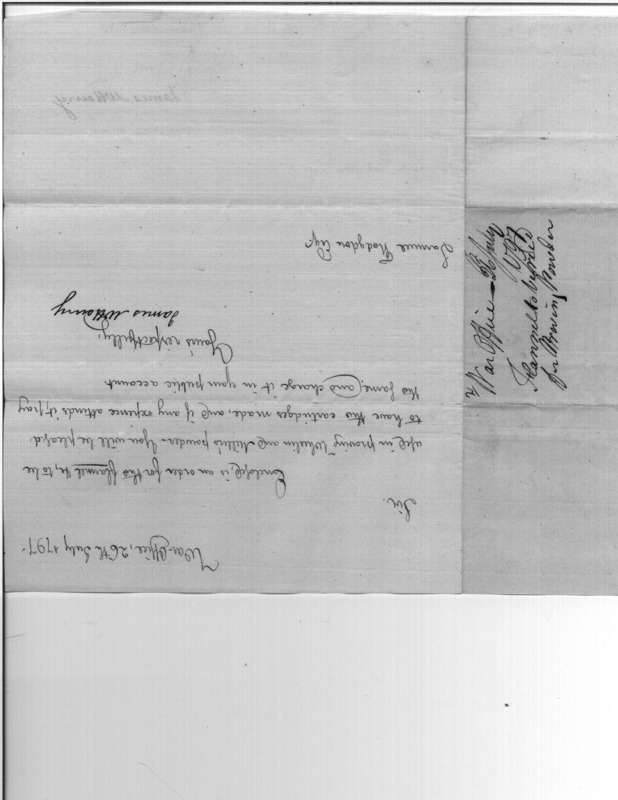 War Office, 26th July 1797.
Sir.
Enclosed is an order for the flannel &c, to be
used in proving Whelen and Miller's powder. You will be pleased
to have the cartridges made, and if any expence attends it, pay
the same, and charge it in your public account.
Yours respectfully,
James McHenry
Samuel Hodgdon Esqr.
War Office 26 July
1797
Flannel to be used
for Proving Powder
James McHenry